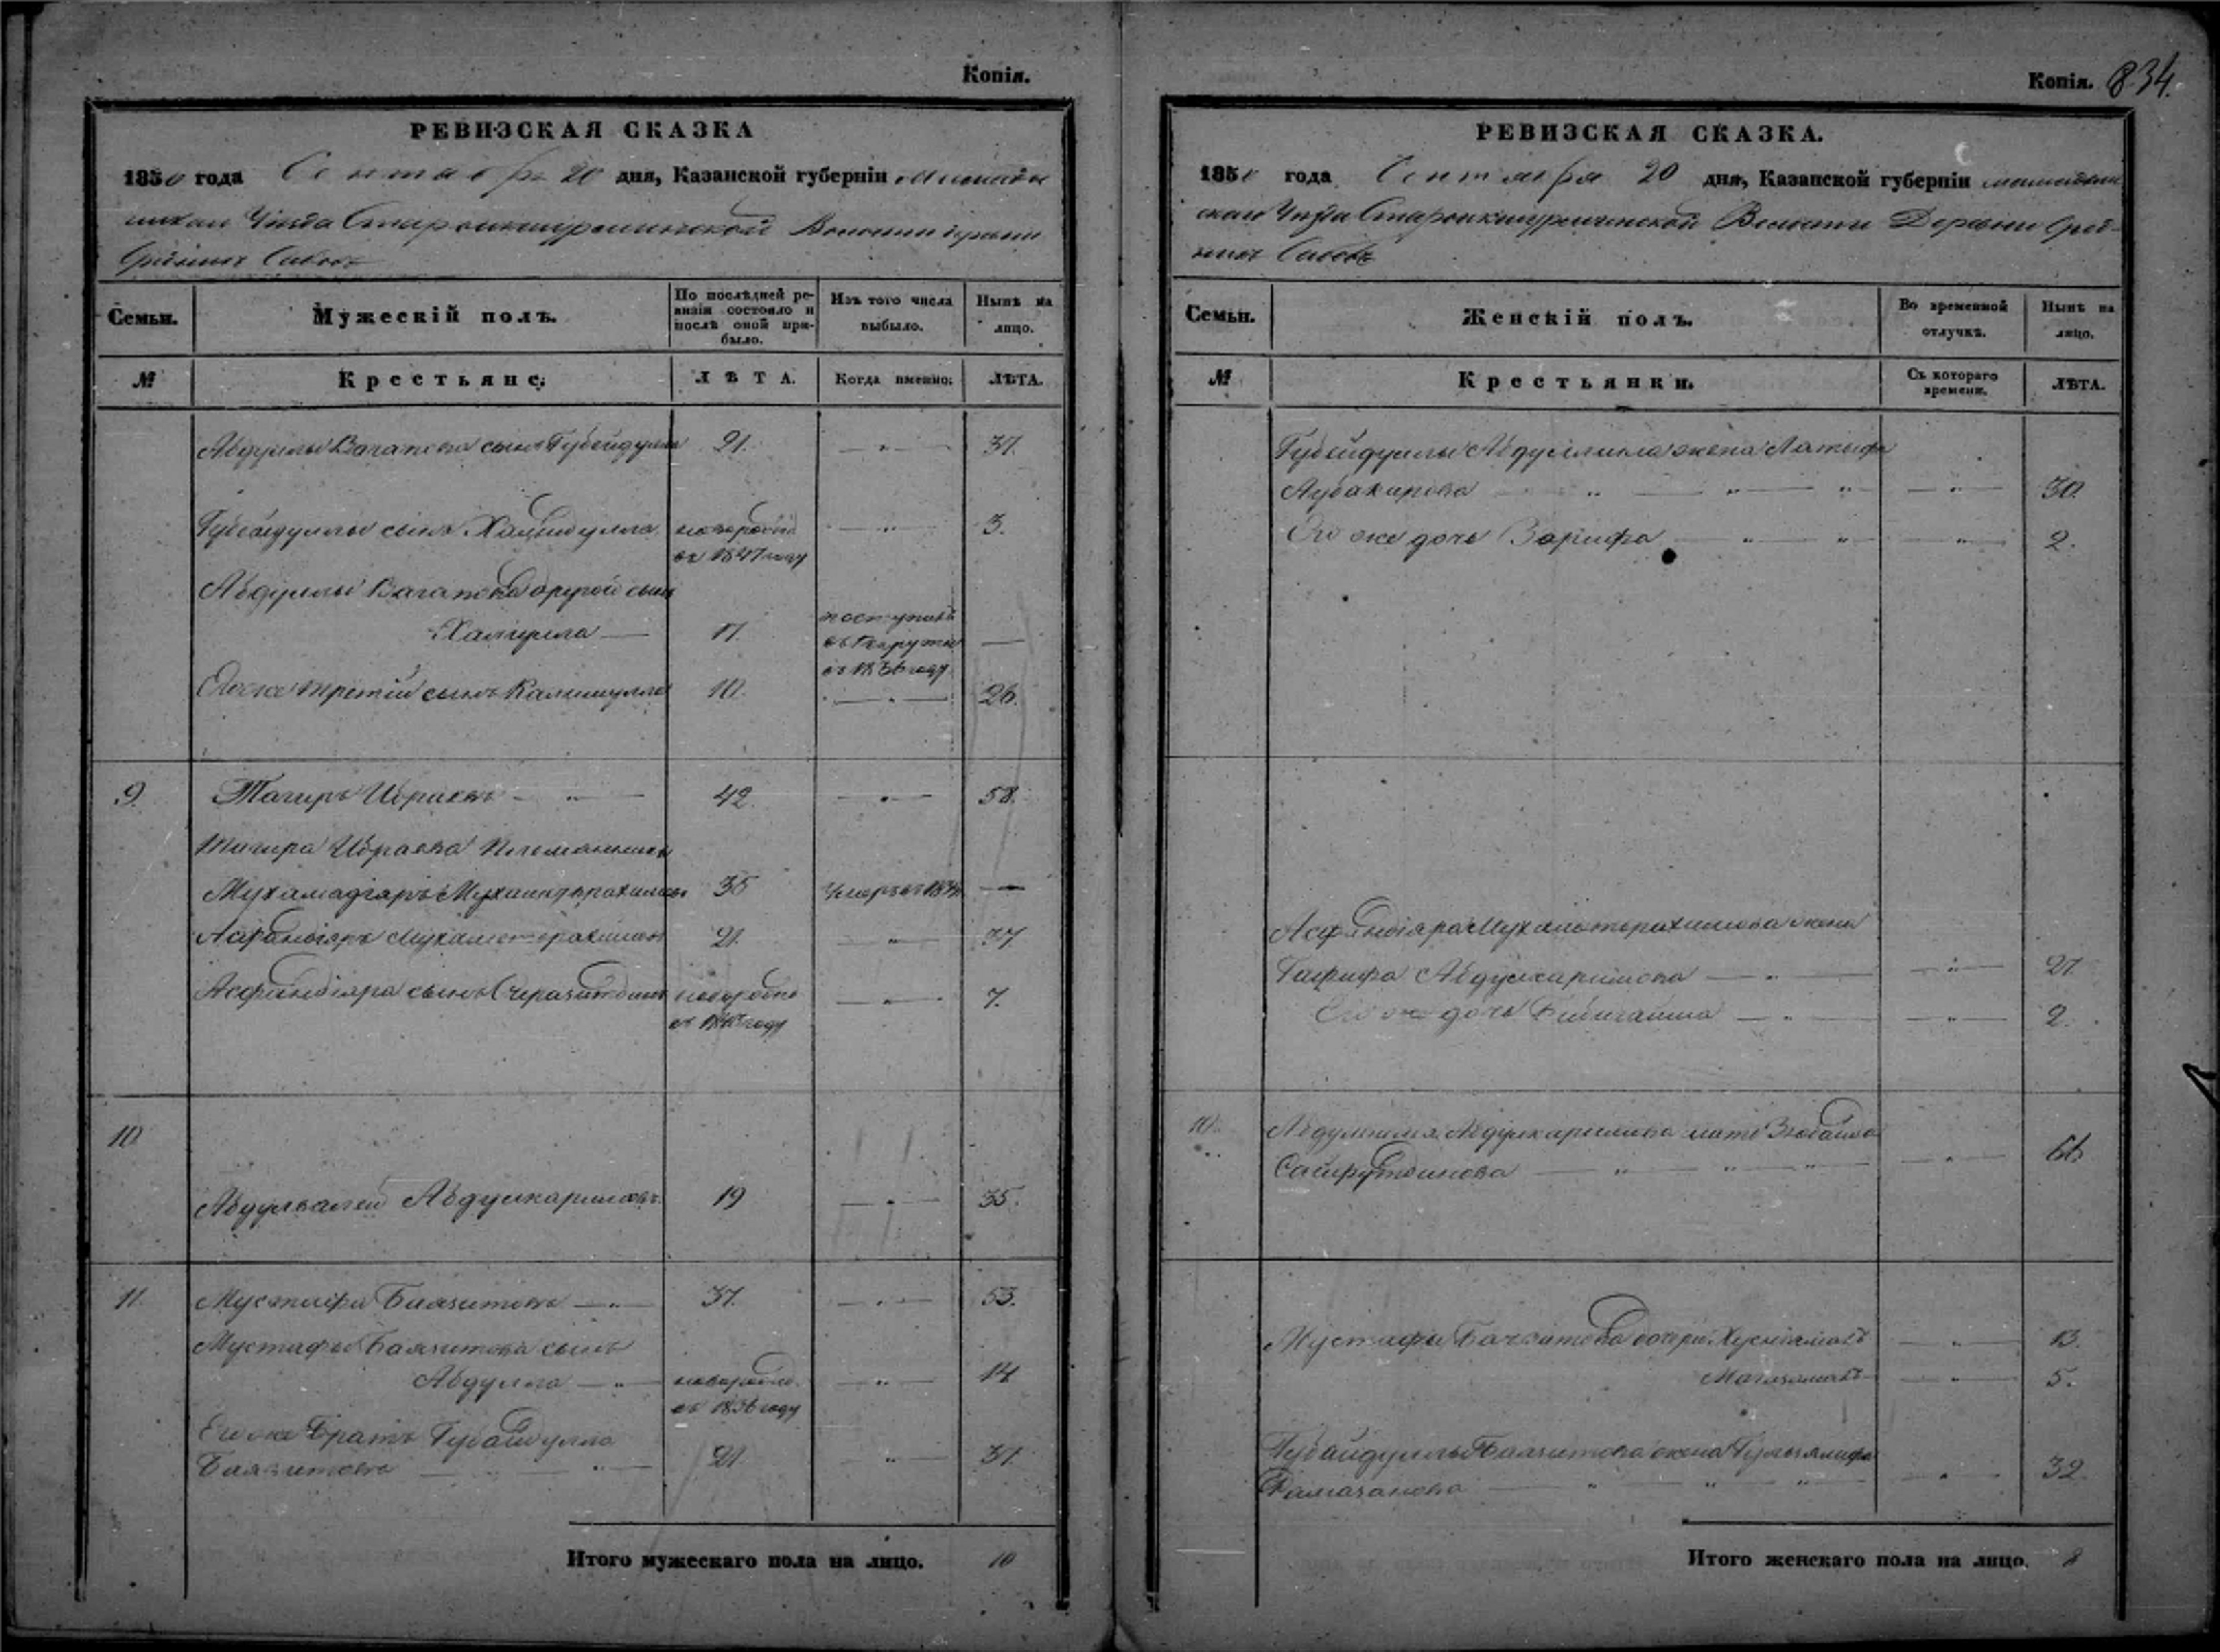 Копія.
РЕВИЗСКАЯ СКАЗКА
1850 года Сентября 20 дня, Казанской губерніи Мамадыш
скаго Уѣзда Волости деревни
Среднихъ Сабовъ
Семьи.
Мужескій полъ.
По послѣдней ре-
визіи состояло и
послѣ оной при-
было.
Изъ того числа
выбыло.
Нынѣ на
лицо.
№
Крестьяне.
ЛѢТА.
Когда именно.
ЛѢТА.
Абдуллы Вагапова сынъ Губейдулла 21. — " — 37.
Губейдуллы сынъ новорожд. — " — 3.
въ 1847 году
Абдуллы Вагапова другой сынъ
17. поступилъ
въ рекруты —
въ 1836 году
Его же третій сынъ Калимулла 10. — " — 26.
9. Тагиръ Ибраевъ — " — 42. — " — 58.
Тагира Ибраева племянники
Мухамадіяръ 35 умеръ въ —
Асфандіяръ Мухаметрахимовъ 21. — " — 37
Асфандіяра сынъ новорожд. — " — 7.
въ году
10.
Абдулвалей Абдулкаримовъ 19 — " — 35.
11. Мустафа Баязитовъ — " — 37. — " — 53.
Мустафы Баязитова сынъ
Абдулла — " — новорожд. — " — 14
въ 1836 году
Его же братъ Губайдулла
Баязитовъ — " — 21. " — 37.
Итого мужескаго пола на лицо. 10
Копія. 834.
РЕВИЗСКАЯ СКАЗКА.
1850 года Сентября 20 дня, Казанской губерніи Мамадыш
скаго Уѣзда Волости Деревни Сред-
нихъ Сабовъ
Семьи.
Женскій полъ.
Во временной
отлучкѣ.
Нынѣ на
лицо.
№
Крестьянки.
Съ котораго
времени.
ЛѢТА.
Губейдуллы Абдуллина жена Латыфа
Аубакирова — " — " — " — " — 30.
Его же дочь Зарифа — " — " — " — 2.
Асфандіяра Мухаметрахимова жена
Абдулкаримова — " — — " — 27.
Его же дочь Бибигайша — " — — " — 2.
10. Абдулкаримова мать
Сайфутдинова — " — " — " — — " — 66.
Мустафы Баязитова дочери — " — 13.
— " — 5.
Губайдуллы Баязитова жена
Рамазанова — " — " — " — — " — 32.
Итого женскаго пола на лицо. 8